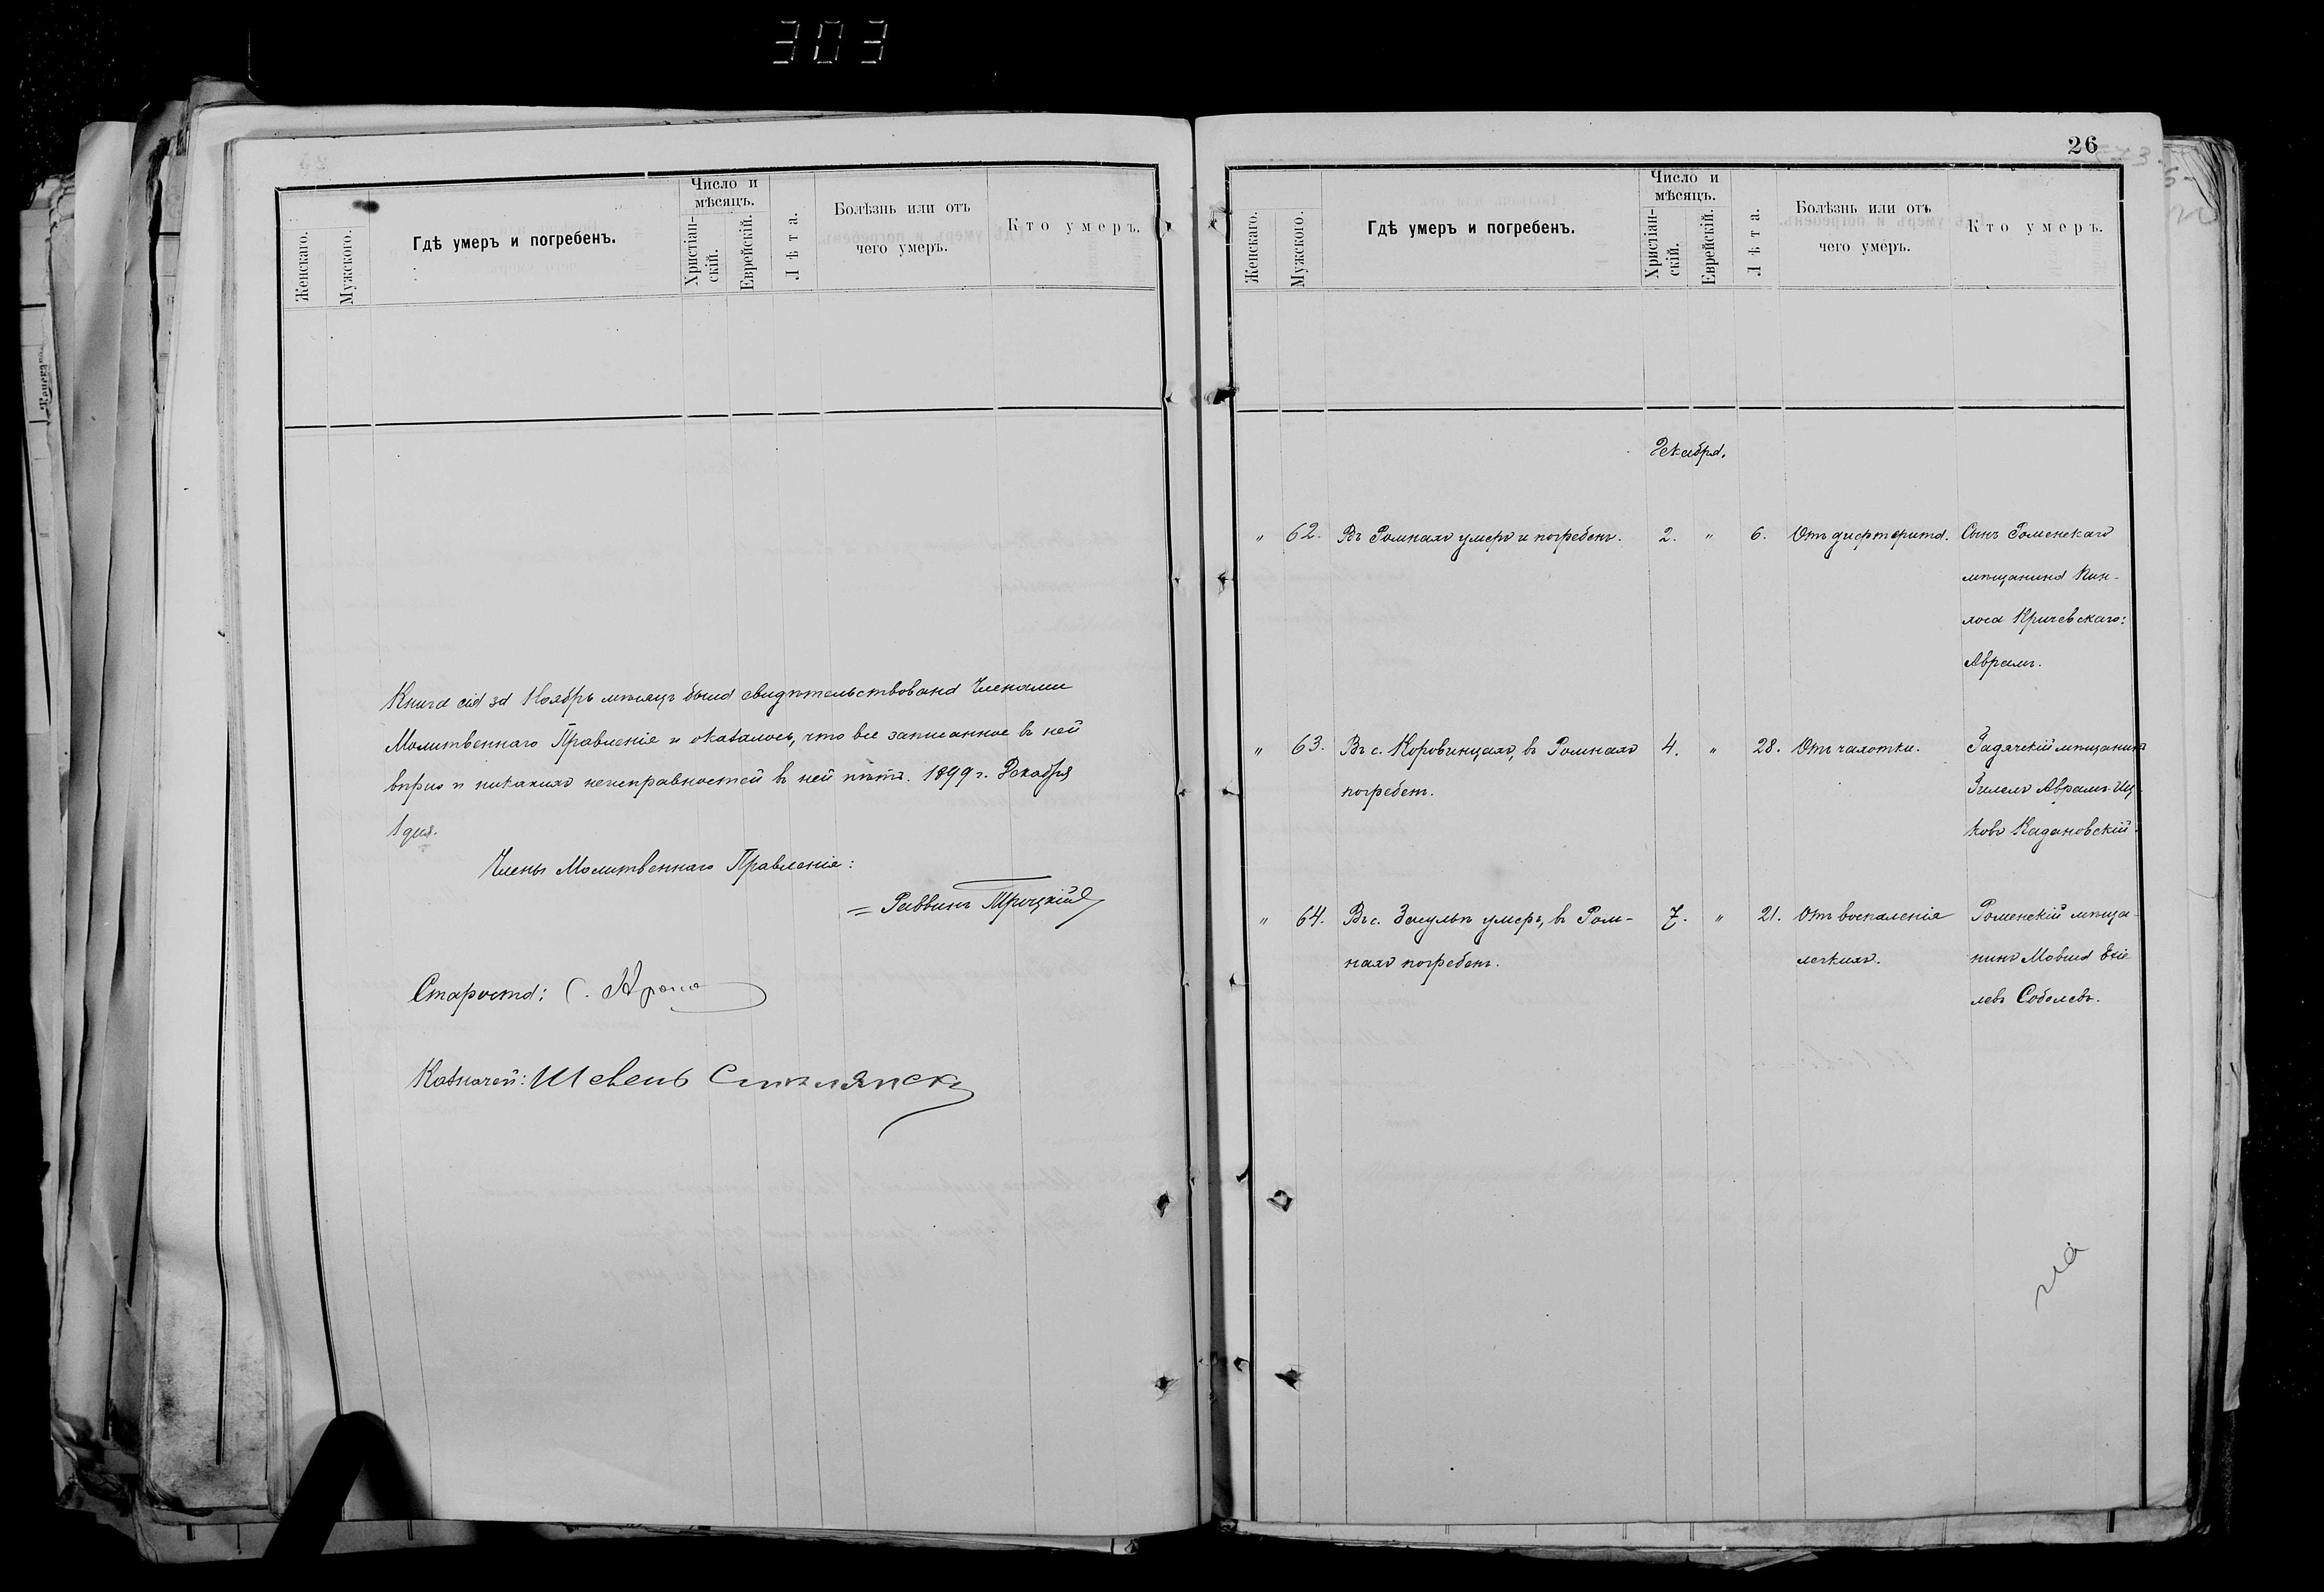 303
Женскаго.
Мужского.
Гдѣ умеръ и погребенъ.
Число и
мѣсяцъ.
Христіан-
скій.
Еврейскій.
Лѣта.
Болѣзнь или отъ
чего умеръ.
Кто умеръ.
Книга сія за Ноябрь мѣсяцъ была свидѣтельствована Членами
Молитвеннаго Правленія и оказалось, что все записанное въ ней
вѣрно и никакихъ неисправностей въ ней нѣтъ. 1899 г. Декабря
1 дня.
Члены Молитвеннаго Правленія:
Раввинъ
Староста: С.
Казначей: Шевель
26
Женскаго.
Мужского.
Гдѣ умеръ и погребенъ.
Число и
мѣсяцъ.
Христіан-
скій.
Еврейскій.
Лѣта.
Болѣзнь или отъ
чего умеръ.
Кто умеръ.
Декабря.
" 62. Въ Ромнахъ умеръ и погребенъ. 2. " 6. Отъ дифтерита. Сынъ Роменскаго
мѣщанина Пин-
хоса Кричевскаго:
Аврамъ.
" 63. Въ с. Коровинцахъ, въ Ромнахъ 4. " 28. Отъ чахотки. Гадячскій мѣщанинъ
погребенъ. Гилелъ Аврамъ-Иц-
ковъ Кагановскій.
" 64. Въ с. Засульѣ умеръ, въ Ром- 7. " 21. Отъ воспаленія Роменскій мѣща-
нахъ погребенъ. легкихъ. нинъ Мовша Ехіе-
левъ Соболевъ.